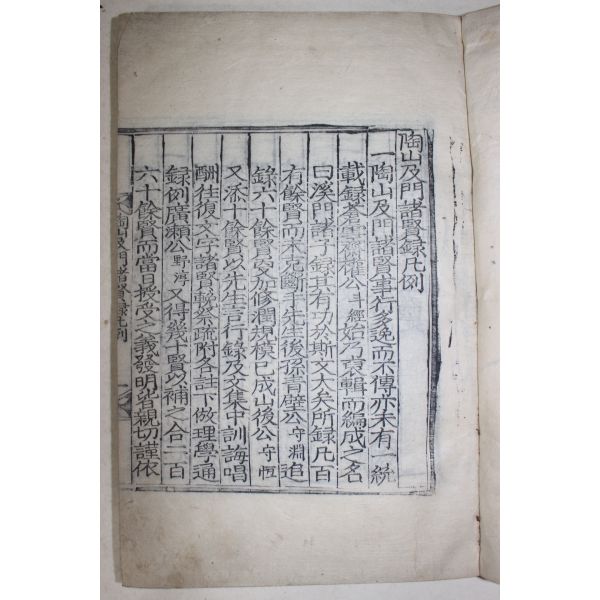 陶山及門諸賢錄凡例
一陶山及門諸賢事行多逸而不傳亦未有一統
載錄蒼雪齋權公斗經始乃裒輯而編成之名
曰溪門諸子錄其有功於斯文大矣所錄凡百
有餘賢而未克斷手先生後孫青壁公守淵追
錄六十餘賢又加修潤規模已成山後公守恒
又添十餘賢以先生言行錄及文集中訓誨唱
酬往復文字諸賢輓祭疏附各註下倣理學通
錄例廣瀨公野淳又得幾十賢以補之合二百
六十餘賢而當日授受之義發明皆親切謹依
陶山及門諸賢錄凡例
一